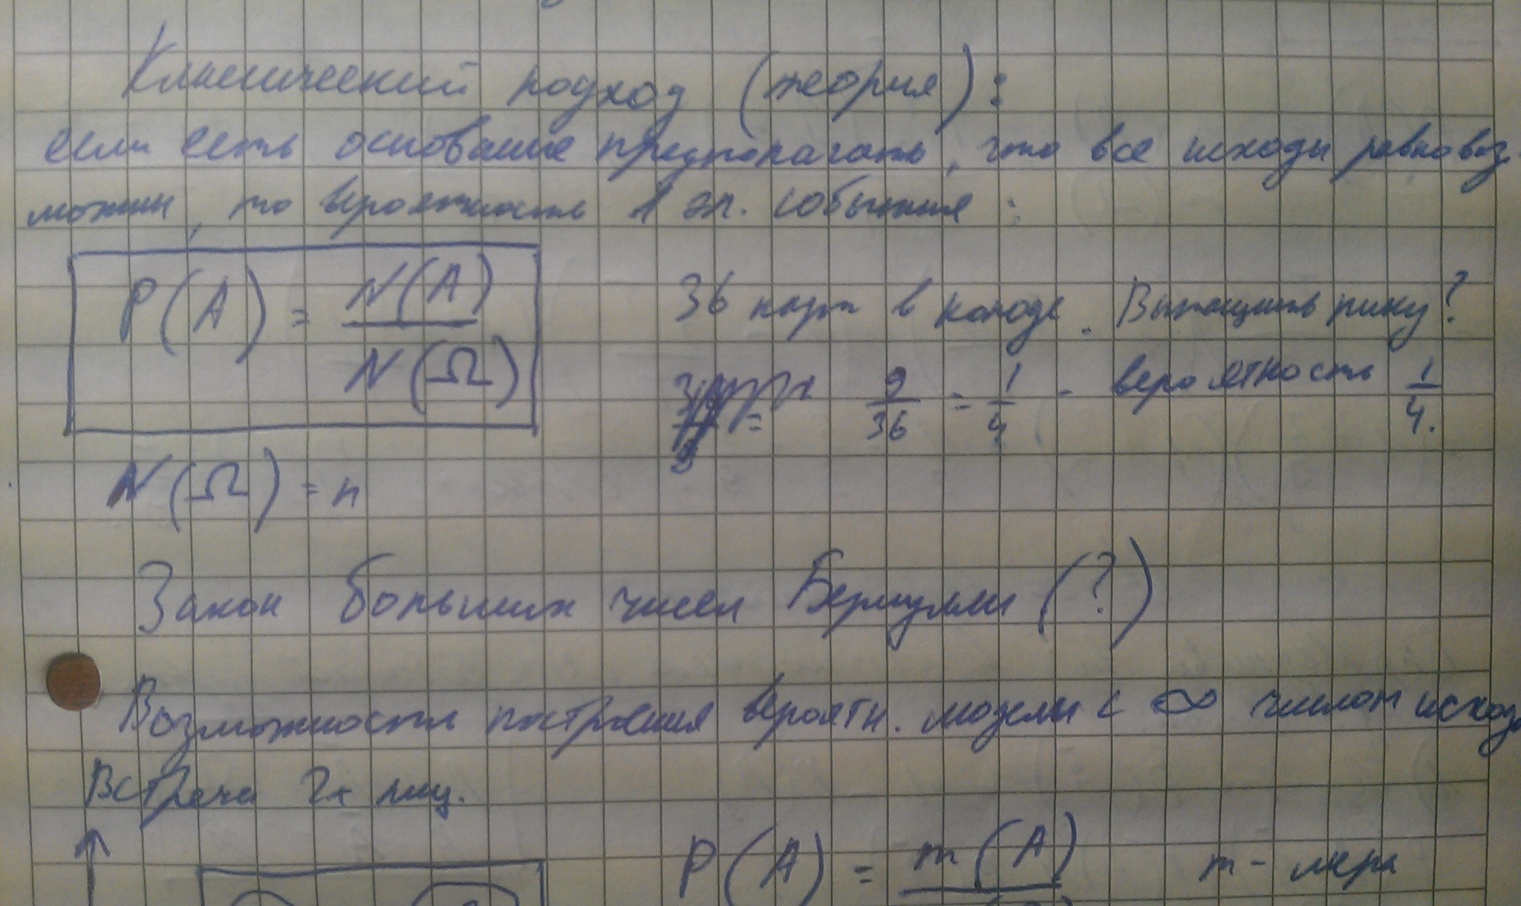 Классический подход (теория):
если есть основание предполагать, что все исходы равновоз-
можны, то вероятность 1 эл. события:
P(A) = N(A) / N(Ω)
36 карт в колоде. Вытащить пику?
9/36 = 1/4 - вероятность 1/4.
N(Ω) = n
Закон больших чисел Бернулли (?)
Возможность построения вероятн. модели с ∞ числом исход
Встреча 2х лиц.
P(A) = m(A)
m - мера